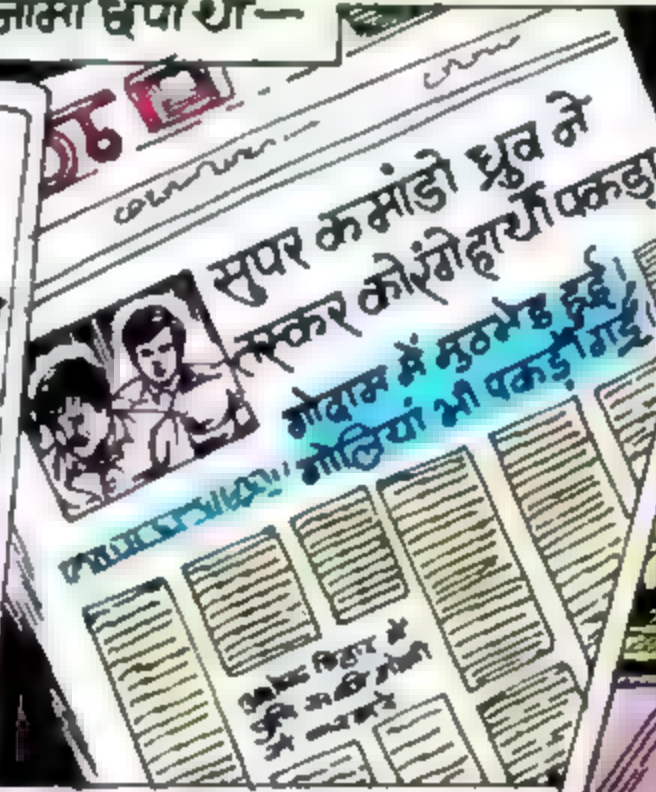 नामा छपा था—
सुपर कमांडो ध्रुव ने
तस्कर को रंगे हाथों पकड़ा
गोदाम में मुठभेड़ हुई।
गोलियां भी पकड़ी गईं।